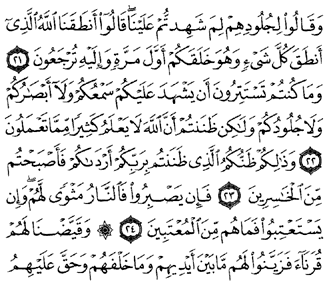 وَقَالُوا۟ لِجُلُودِهِمْ لِمَ شَهِدتُّمْ عَلَيْنَا ۖ قَالُوٓا۟ أَنطَقَنَا ٱللَّهُ ٱلَّذِىٓ
أَنطَقَ كُلَّ شَىْءٍ وَهُوَ خَلَقَكُمْ أَوَّلَ مَرَّةٍ وَإِلَيْهِ تُرْجَعُونَ ٢١
وَمَا كُنتُمْ تَسْتَتِرُونَ أَن يَشْهَدَ عَلَيْكُمْ سَمْعُكُمْ وَلَآ أَبْصَٰرُكُمْ
وَلَا جُلُودُكُمْ وَلَٰكِن ظَنَنتُمْ أَنَّ ٱللَّهَ لَا يَعْلَمُ كَثِيرًا مِّمَّا تَعْمَلُونَ
٢٢ وَذَٰلِكُمْ ظَنُّكُمُ ٱلَّذِى ظَنَنتُم بِرَبِّكُمْ أَرْدَىٰكُمْ فَأَصْبَحْتُم
مِّنَ ٱلْخَٰسِرِينَ ٢٣ فَإِن يَصْبِرُوا۟ فَٱلنَّارُ مَثْوًى لَّهُمْ ۖ وَإِن
يَسْتَعْتِبُوا۟ فَمَا هُم مِّنَ ٱلْمُعْتَبِينَ ٢٤ ۞ وَقَيَّضْنَا لَهُمْ
قُرَنَآءَ فَزَيَّنُوا۟ لَهُم مَّا بَيْنَ أَيْدِيهِمْ وَمَا خَلْفَهُمْ وَحَقَّ عَلَيْهِمُ